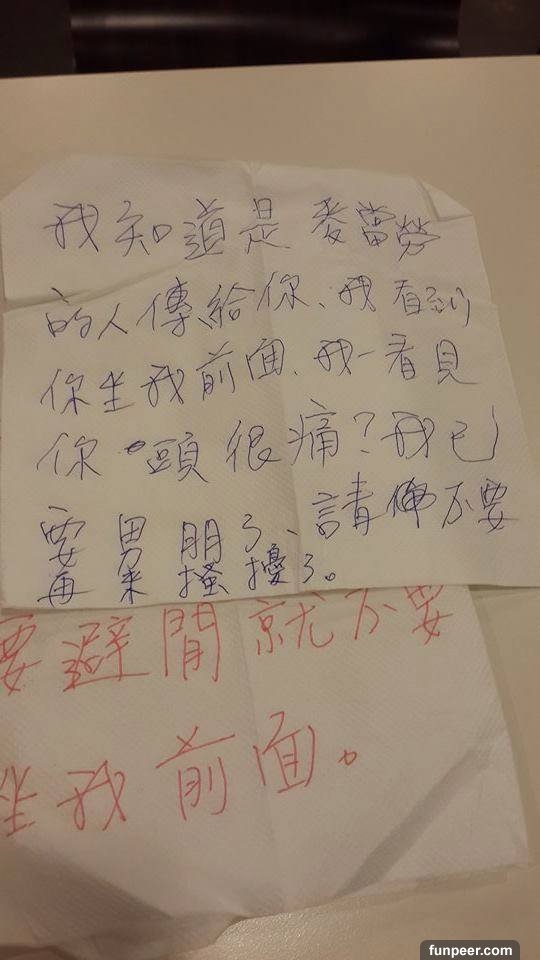 我知道是麥當勞
的人傳給你、我看到
你坐我前面、我一看見
你頭很痛？我已
要男朋了、請你不要
再来搔擾了。
要避開就不要
坐我前面。
funpeer.com